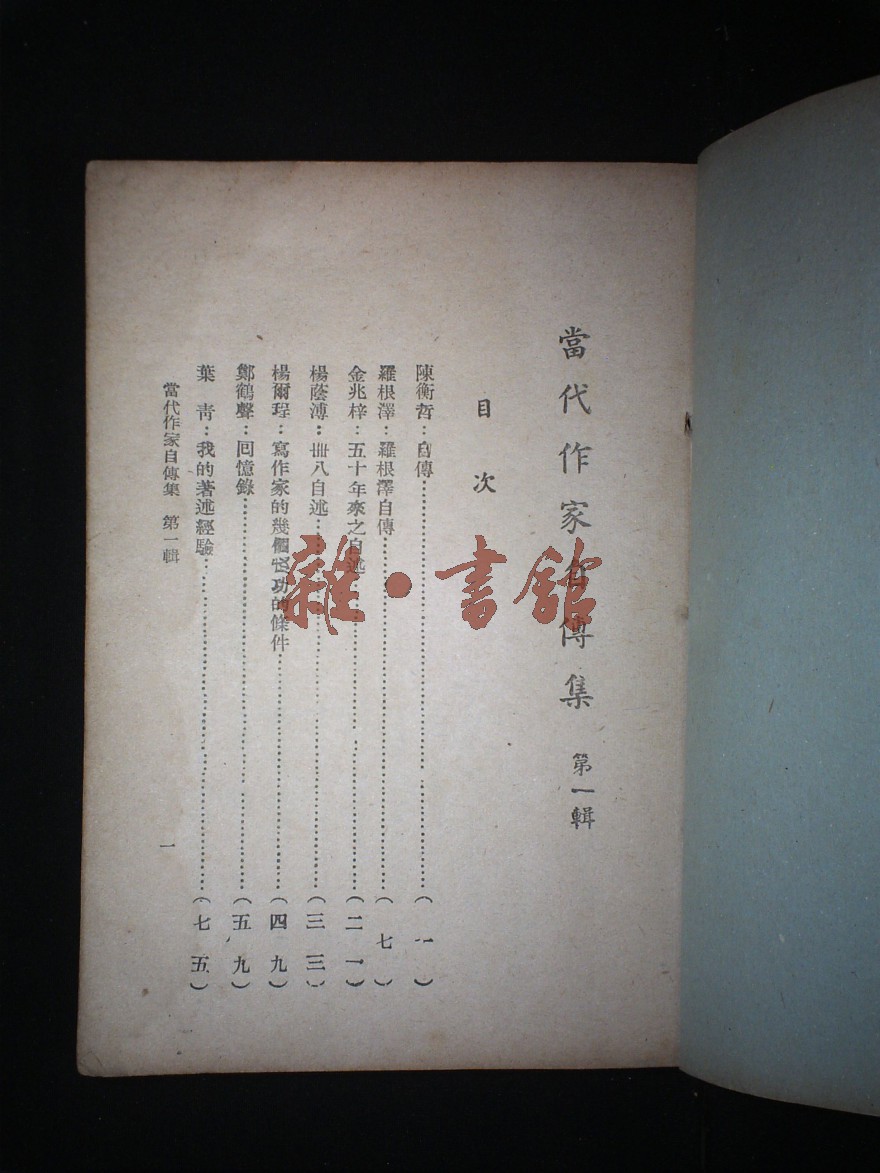 當代作家自傳集　第一輯
目次
陳衡哲：自傳……（一）
羅根澤：羅根澤自傳……（七）
金兆梓：五十年來之自述……（二一）
楊蔭溥：卌八自述……（三三）
楊爾珵：寫作家的幾個成功的條件……（四九）
鄭鶴聲：回憶錄……（五九）
葉　青：我的著述經驗……（七五）
當代作家自傳集　第一輯
一
雜·書館